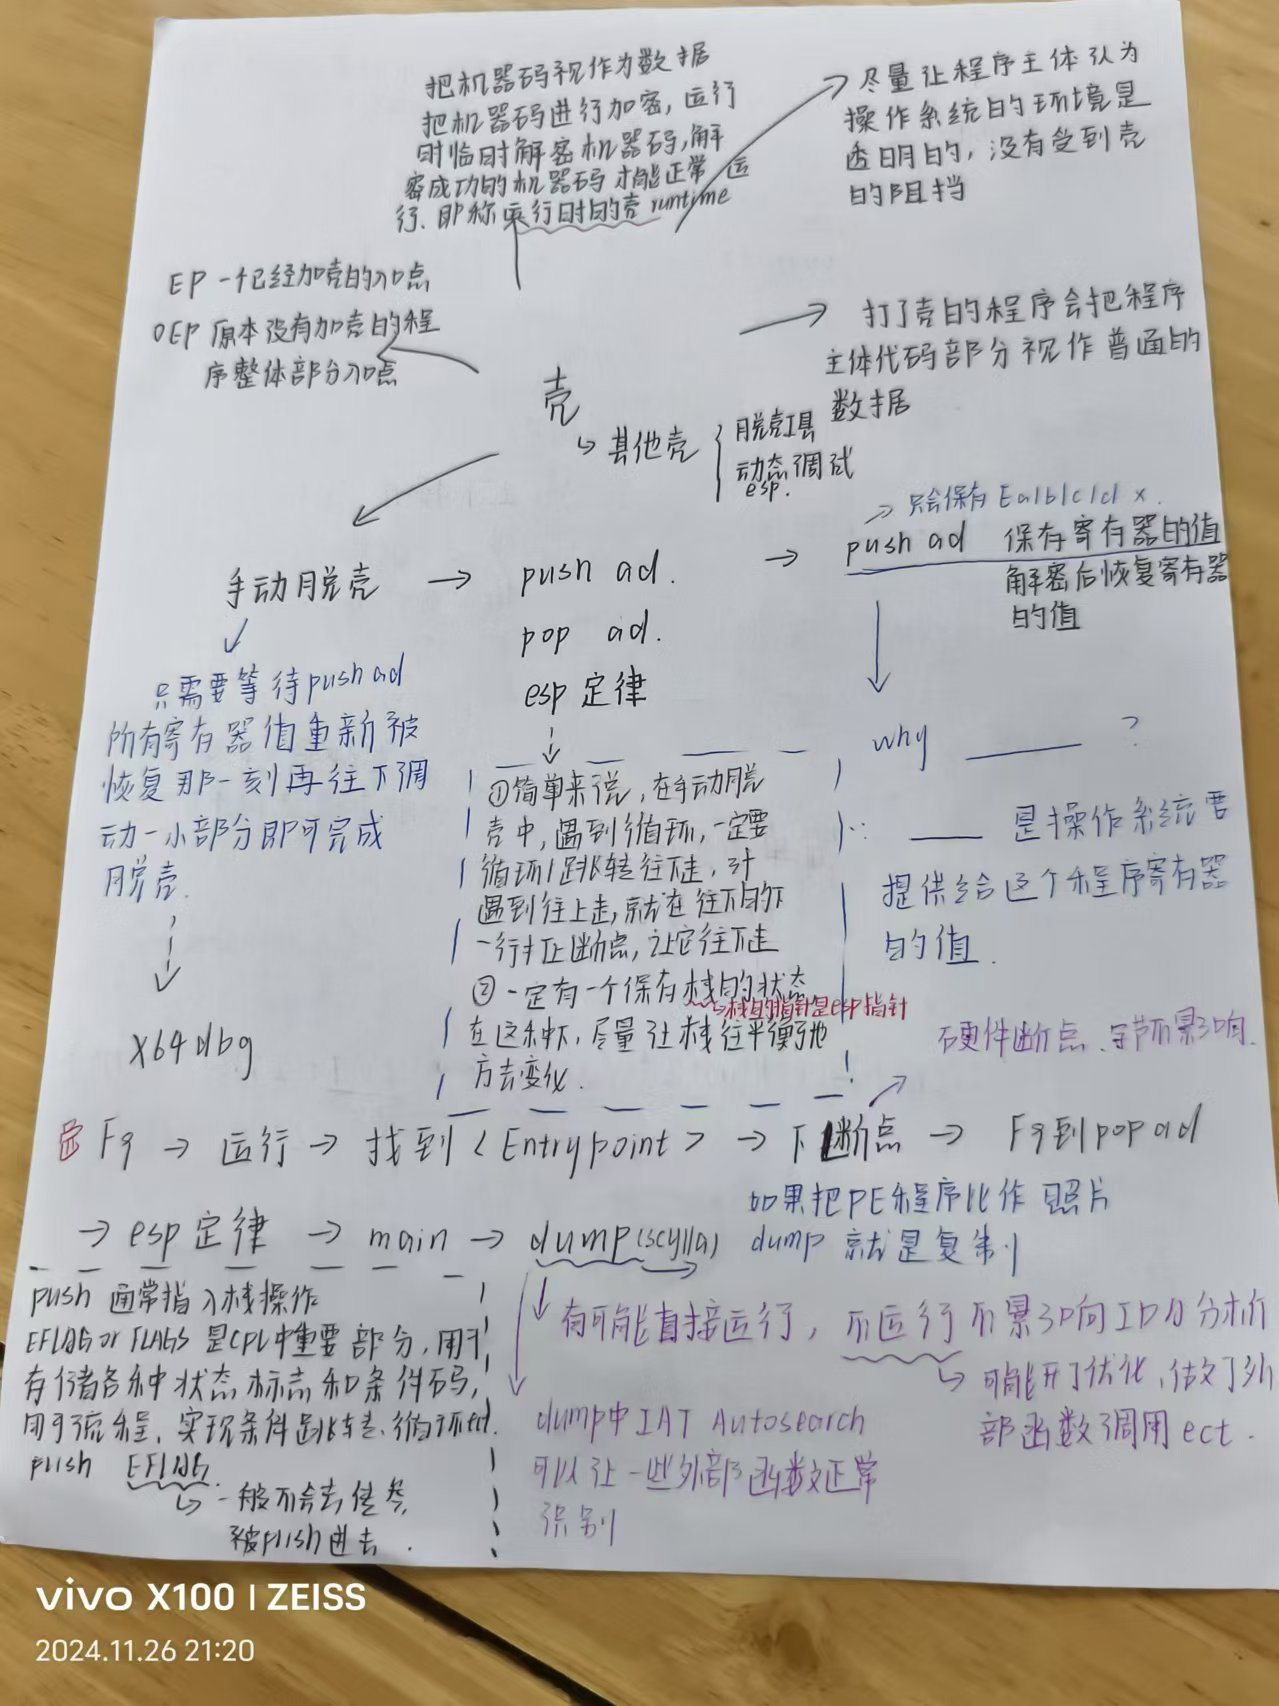 把机器码视作为数据
把机器码进行加密，运行
时临时解密机器码，解
密成功的机器码才能正常运
行、即称运行时的壳 runtime
尽量让程序主体认为
操作系统的环境是
透明的，没有受到壳
的阻挡
EP 一个已经加壳的入口点
OEP 原本没有加壳的程
序整体部分入口点
打了壳的程序会把程序
主体代码部分视作普通的
数据
壳
其他壳
脱壳工具
动态调试
esp.
手动脱壳 → push ad.
pop ad.
esp 定律
→ 只会保存 Ea/b/c/d x.
→ push ad 保存寄存器的值
解密后恢复寄存器
的值
只需要等待push ad
所有寄存器值重新被
恢复那一刻再往下调
动一小部分即可完成
脱壳.
x64dbg
why ?
∵ 是操作系统要
提供给这个程序寄存器
的值.
①简单来说，在手动脱
壳中，遇到循环，一定要
循环/跳转往下走，
遇到往上走，就在往下的下
一行打上断点，让它往下走
②一定有一个保存栈的状态
→栈的指针是esp指针
在这种下，尽量让栈往平衡
方去变化.
硬件断点、字节不影响.
F9 → 运行 → 找到<Entrypoint> → 下断点 → F9到popad
→ esp定律 → main → dump(scylla)
如果把PE程序比作照片
dump 就是复制
push 通常指入栈操作
EFLAG or FLAGS 是CPU中重要部分，用于
存储各种状态标志和条件码，
用于流程、实现条件跳转、循环ect.
push EFLAG.
一般不会去传参
被push进去.
有可能直接运行，不运行不影响IDA分析
可能开了优化、做了外
部函数调用ect.
dump中IAT Autosearch
可以让一些外部函数正常
识别
vivo X100 | ZEISS
2024.11.26 21:20